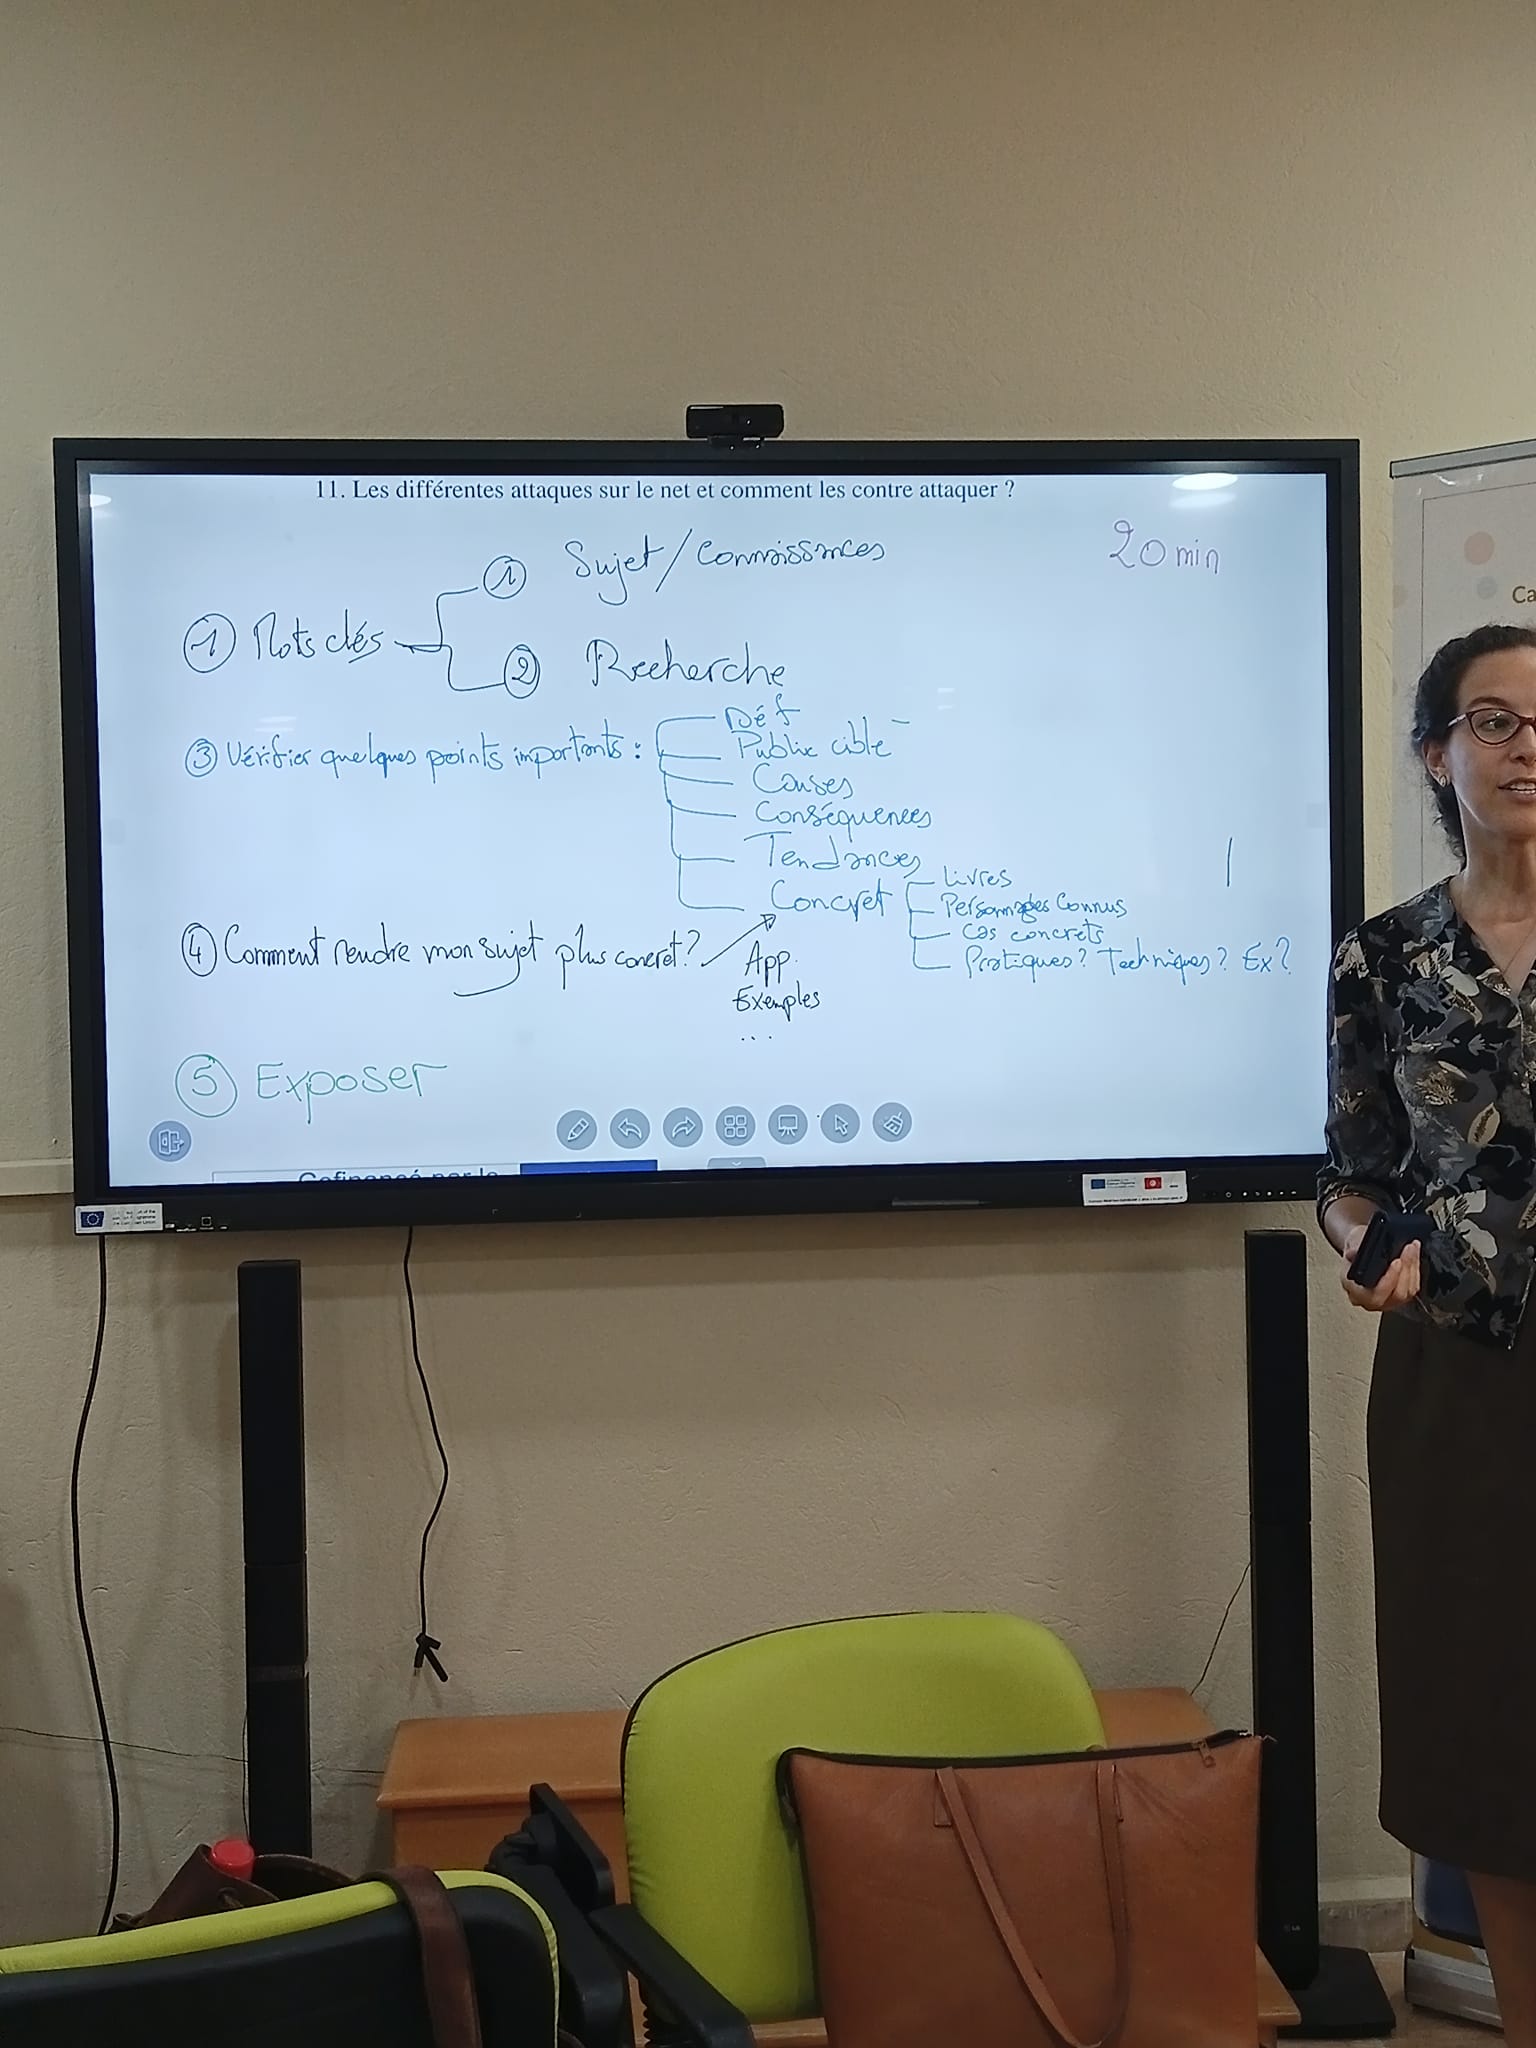 11. Les différentes attaques sur le net et comment les contre attaquer ?
20 min
① Mots clés
① Sujet / Connaissances
② Recherche
③ Vérifier quelques points importants :
Déf
Public cible
Causes
Conséquences
Tendances
Concret
Livres
Personnages Connus
Cas concrets
Pratiques ? Techniques ? Ex ?
④ Comment rendre mon sujet plus concret ?
App.
Exemples
...
⑤ Exposer
Cofinancé par le
Ca